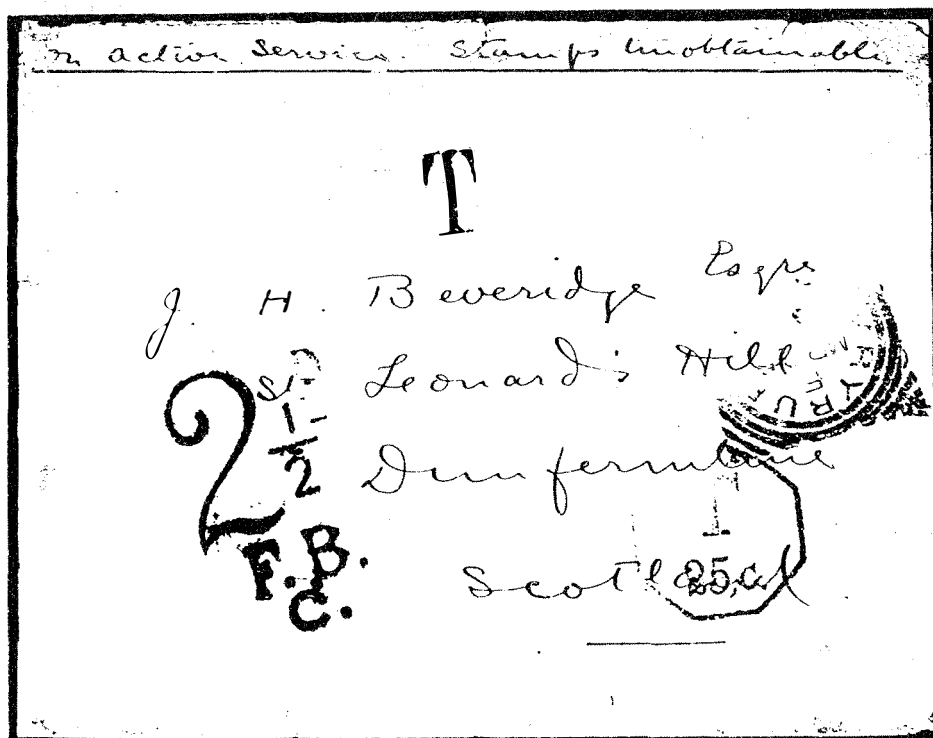 n Active Service. Stamps Unobtainable.
T
J. H. Beveridge Esqre
St. Leonard's Hill
2 1/2
Dunfermline
F.B.
C.
Scotland
T
25.c.